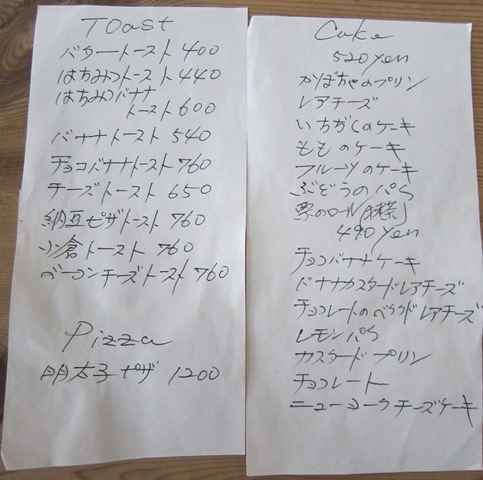 Toast
バタートースト 400
はちみつトースト 440
はちみつバナナ
トースト 600
バナナトースト 540
チョコバナナトースト 760
チーズトースト 650
納豆ピザトースト 760
小倉トースト 760
ベーコンチーズトースト 760
Pizza
明太子ピザ 1200
Cake
520yen
かぼちゃのプリン
レアチーズ
いちぢくのケーキ
もものケーキ
フルーツのケーキ
ぶどうのパイ
栗のロール
490yen
チョコバナナケーキ
バナナカスタードレアチーズ
チョコレートのベイクドレアチーズ
レモンパイ
カスタードプリン
チョコレート
ニューヨークチーズケーキ